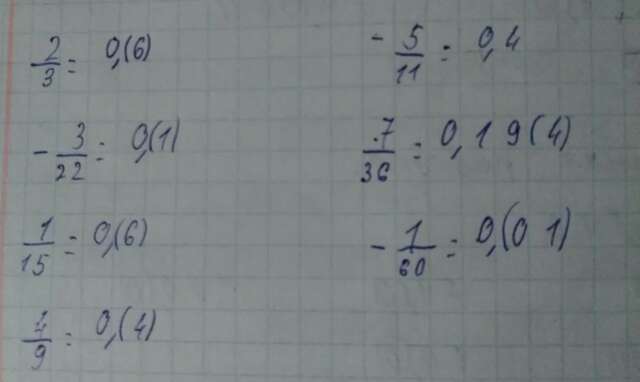 2/3 = 0,(6)
- 5/11 = 0,4
- 3/22 = 0,(1)
7/36 = 0,19(4)
1/15 = 0,(6)
- 1/60 = 0,(01)
4/9 = 0,(4)